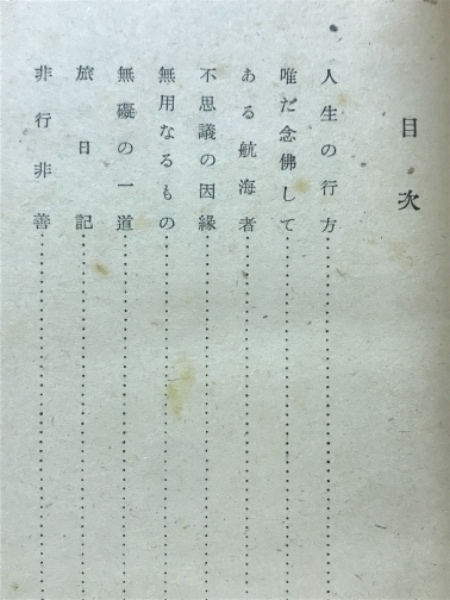 目次
人生の行方
唯だ念佛して
ある航海者
不思議の因縁
無用なるもの
無礙の一道
旅日記
非行非善